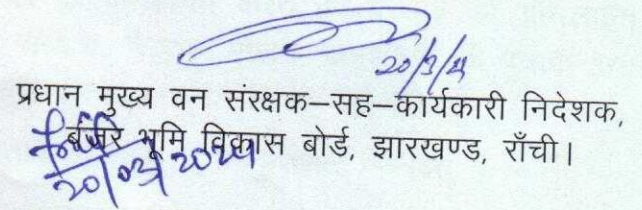 20/3/24
प्रधान मुख्य वन संरक्षक–सह–कार्यकारी निदेशक,
बंजर भूमि विकास बोर्ड, झारखण्ड, राँची।
20/03/2024